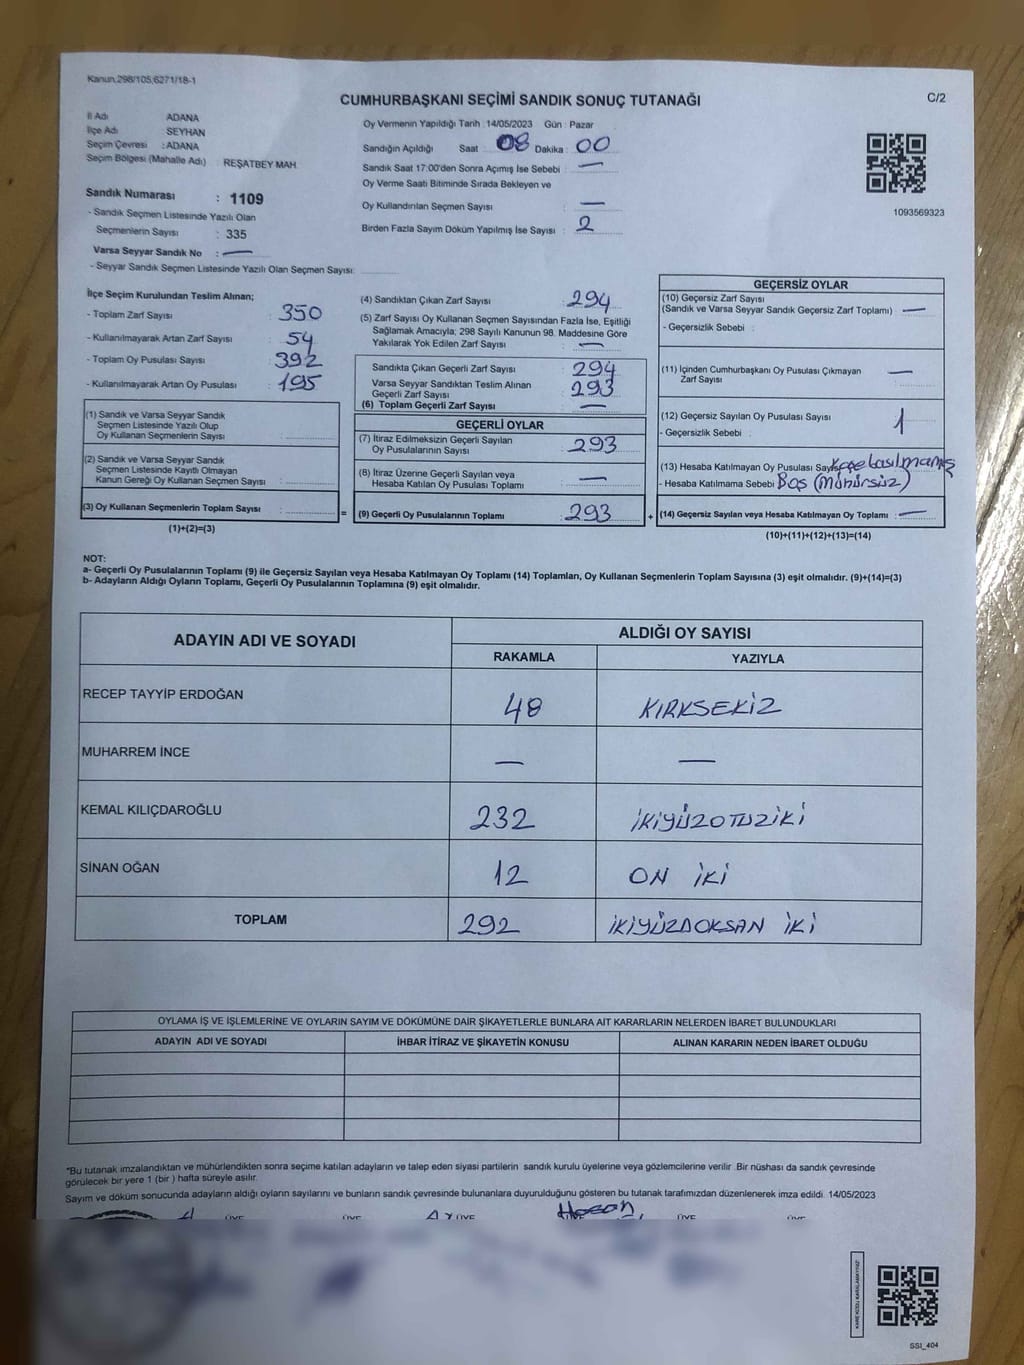 Kanun.298/105;6271/18-1
CUMHURBAŞKANI SEÇİMİ SANDIK SONUÇ TUTANAĞI
C/2
İl Adı ADANA
İlçe Adı SEYHAN
Seçim Çevresi : ADANA
Seçim Bölgesi (Mahalle Adı) : REŞATBEY MAH
Sandık Numarası : 1109
- Sandık Seçmen Listesinde Yazılı Olan
Seçmenlerin Sayısı : 335
Varsa Seyyar Sandık No : —
- Seyyar Sandık Seçmen Listesinde Yazılı Olan Seçmen Sayısı:
Oy Vermenin Yapıldığı Tarih :14/05/2023 Gün : Pazar
Sandığın Açıldığı Saat 08 Dakika : 00
Sandık Saat 17:00'den Sonra Açımış İse Sebebi : —
Oy Verme Saati Bitiminde Sırada Bekleyen ve
Oy Kullandırılan Seçmen Sayısı : —
Birden Fazla Sayım Döküm Yapılmış İse Sayısı : 2
1093569323
İlçe Seçim Kurulundan Teslim Alınan;
- Toplam Zarf Sayısı : 350
- Kullanılmayarak Artan Zarf Sayısı : 54
- Toplam Oy Pusulası Sayısı : 392
- Kullanılmayarak Artan Oy Pusulası : 195
(1) Sandık ve Varsa Seyyar Sandık
Seçmen Listesinde Yazılı Olup
Oy Kullanan Seçmenlerin Sayısı :
(2) Sandık ve Varsa Seyyar Sandık
Seçmen Listesinde Kayıtlı Olmayan
Kanun Gereği Oy Kullanan Seçmen Sayısı :
(3) Oy Kullanan Seçmenlerin Toplam Sayısı :
(1)+(2)=(3)
(4) Sandıktan Çıkan Zarf Sayısı : 294
(5) Zarf Sayısı Oy Kullanan Seçmen Sayısından Fazla İse, Eşitliği
Sağlamak Amacıyla; 298 Sayılı Kanunun 98. Maddesine Göre
Yakılarak Yok Edilen Zarf Sayısı : —
Sandıkta Çıkan Geçerli Zarf Sayısı : 294
Varsa Seyyar Sandıktan Teslim Alınan
Geçerli Zarf Sayısı : 293
(6) Toplam Geçerli Zarf Sayısı : —
GEÇERLİ OYLAR
(7) İtiraz Edilmeksizin Geçerli Sayılan
Oy Pusulalarının Sayısı : 293
(8) İtiraz Üzerine Geçerli Sayılan veya
Hesaba Katılan Oy Pusulası Toplamı : —
= (9) Geçerli Oy Pusulalarının Toplamı : 293
GEÇERSİZ OYLAR
(10) Geçersiz Zarf Sayısı
(Sandık ve Varsa Seyyar Sandık Geçersiz Zarf Toplamı) : —
- Geçersizlik Sebebi :
(11) İçinden Cumhurbaşkanı Oy Pusulası Çıkmayan
Zarf Sayısı : —
(12) Geçersiz Sayılan Oy Pusulası Sayısı 1
- Geçersizlik Sebebi :
(13) Hesaba Katılmayan Oy Pusulası
- Hesaba Katılmama Sebebi : Boş (Mühürsüz)
+ (14) Geçersiz Sayılan veya Hesaba Katılmayan Oy Toplamı : —
(10)+(11)+(12)+(13)=(14)
NOT:
a- Geçerli Oy Pusulalarının Toplamı (9) ile Geçersiz Sayılan veya Hesaba Katılmayan Oy Toplamı (14) Toplamları, Oy Kullanan Seçmenlerin Toplam Sayısına (3) eşit olmalıdır. (9)+(14)=(3)
b- Adayların Aldığı Oyların Toplamı, Geçerli Oy Pusulalarının Toplamına (9) eşit olmalıdır.
ADAYIN ADI VE SOYADI ALDIĞI OY SAYISI
RAKAMLA YAZIYLA
RECEP TAYYİP ERDOĞAN 48 KIRKSEKİZ
MUHARREM İNCE — —
KEMAL KILIÇDAROĞLU 232 İKİYÜZOTUZİKİ
SİNAN OĞAN 12 ON İKİ
TOPLAM 292 İKİYÜZDOKSAN İKİ
OYLAMA İŞ VE İŞLEMLERİNE VE OYLARIN SAYIM VE DÖKÜMÜNE DAİR ŞİKAYETLERLE BUNLARA AİT KARARLARIN NELERDEN İBARET BULUNDUKLARI
ADAYIN ADI VE SOYADI İHBAR İTİRAZ VE ŞİKAYETİN KONUSU ALINAN KARARIN NEDEN İBARET OLDUĞU
*Bu tutanak imzalandıktan ve mühürlendikten sonra seçime katılan adayların ve talep eden siyasi partilerin sandık kurulu üyelerine veya gözlemcilerine verilir. Bir nüshası da sandık çevresinde
görülecek bir yere 1 (bir ) hafta süreyle asılır.
Sayım ve döküm sonucunda adayların aldığı oyların sayılarını ve bunların sandık çevresinde bulunanlara duyurulduğunu gösteren bu tutanak tarafımızdan düzenlenerek imza edildi. 14/05/2023
ÜYE ÜYE ÜYE Hasan ÜYE ÜYE
SSI_404